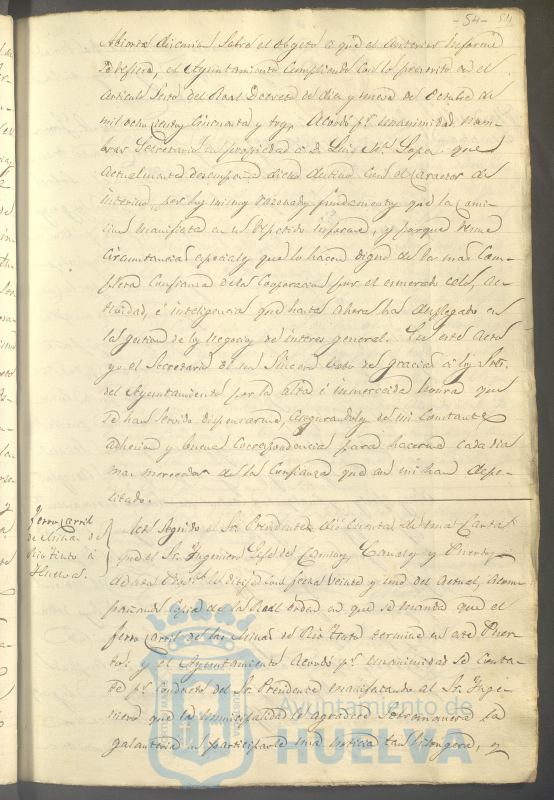 -54- 54
discusion sobre el objeto a que el anterior Informe
se refiere, el Ayuntamiento cumpliendo con lo prescrito en el
Articulo sesto del Real Decreto de dia y de Octubre de
mil ochocientos cincuenta y tres, Acordó pr. unanimidad nom-
brar Secretario en propiedad a D. Luis Mª. Sopa que
actualmente desempeña dicho destino con el caracter de
interino, por los mismos razonados fundamentos que la Comi-
sion manifiesta en su repetido Informe, y porque reune
circunstancias especiales que lo hacen digno de la mas com-
pleta confianza de la Corporacion por el esmerado celo, ac-
tividad, é inteligencia que hasta ahora ha desplegado en
la gestion de los negocios de interes general. En este acto
yo el Secretario dí un sincero voto de gracias á los Sres.
del Ayuntamiento por la alta é inmerecida honra que
se han servido dispensarme, asegurandoles de mi constante
adhesion y buena correspondencia para hacerme cada dia
mas merecedor de la confianza que en mi han depo-
sitado.
Ferro carril
de Minas de
Rio Tinto á
Huelva.
En seguida el Sr. Presidente dió cuenta de una carta
que el Sr. Ingeniero Gefe de Caminos, Canales y Puertos
le dirije con fecha veinte y uno del actual, acom-
pañando copia de la Real orden en que se manda que el
ferro carril de las Minas de Rio Tinto termine en este Puer-
to: y el Ayuntamiento Acordó pr. unanimidad se contes-
te pr. conducto del Sr. Presidente manifestando al Sr. Inge-
niero que la municipalidad le agradece sobremanera la
galanteria de participarle una noticia tan lisongera, y
Ayuntamiento de
HUELVA